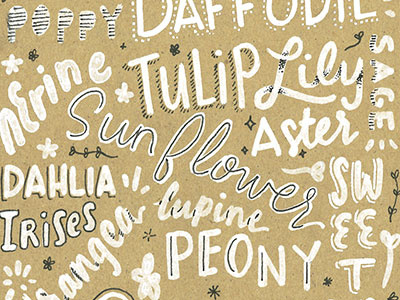 POPPY
DAFFODIL
Nerine
TULIP
Lily
SAGE
Sunflower
Aster
DAHLIA
IRISES
lupine
SWEET
PEONY
angea